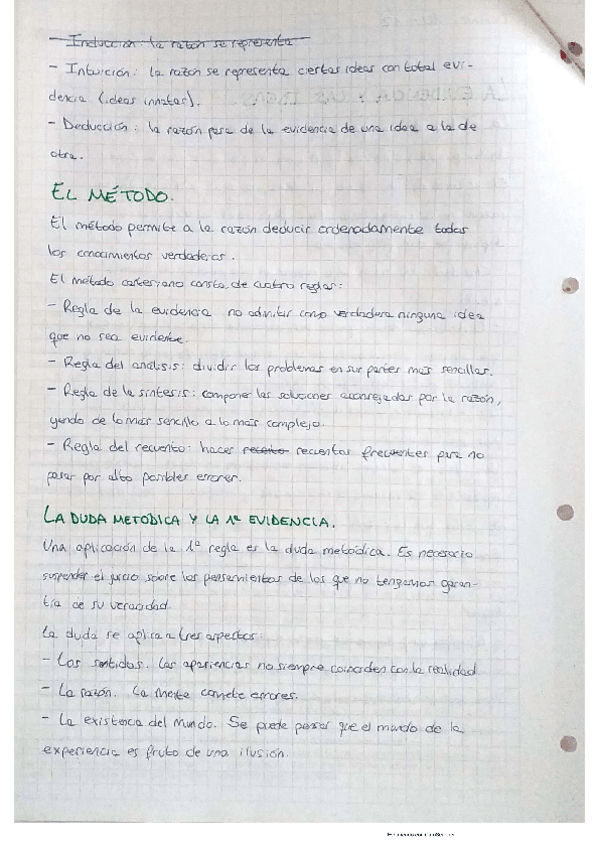 - Inducción: la razón se representa
- Intuición: la razón se representa ciertas ideas con total evi-
dencia (ideas innatas).
- Deducción: la razón pasa de la evidencia de una idea a la de
otra.
EL MÉTODO.
El método permite a la razón deducir ordenadamente todos
los conocimientos verdaderos.
El método cartesiano consta de cuatro reglas:
- Regla de la evidencia no admitir como verdadera ninguna idea
que no sea evidente.
- Regla del análisis: dividir los problemas en sus partes más sencillas.
- Regla de la síntesis: componer las soluciones aconsejadas por la razón,
yendo de lo más sencillo a lo más complejo.
- Regla del recuento: hacer recuentos frecuentes para no
pasar por alto posibles errores.
LA DUDA METÓDICA Y LA 1ª EVIDENCIA.
Una aplicación de la 1ª regla es la duda metódica. Es necesario
suspender el juicio sobre los pensamientos de los que no tengamos garan-
tía de su veracidad.
La duda se aplica a tres aspectos:
- Los sentidos. Las apariencias no siempre coinciden con la realidad.
- La razón. La mente comete errores.
- La existencia del mundo. Se puede pensar que el mundo de la
experiencia es fruto de una ilusión.